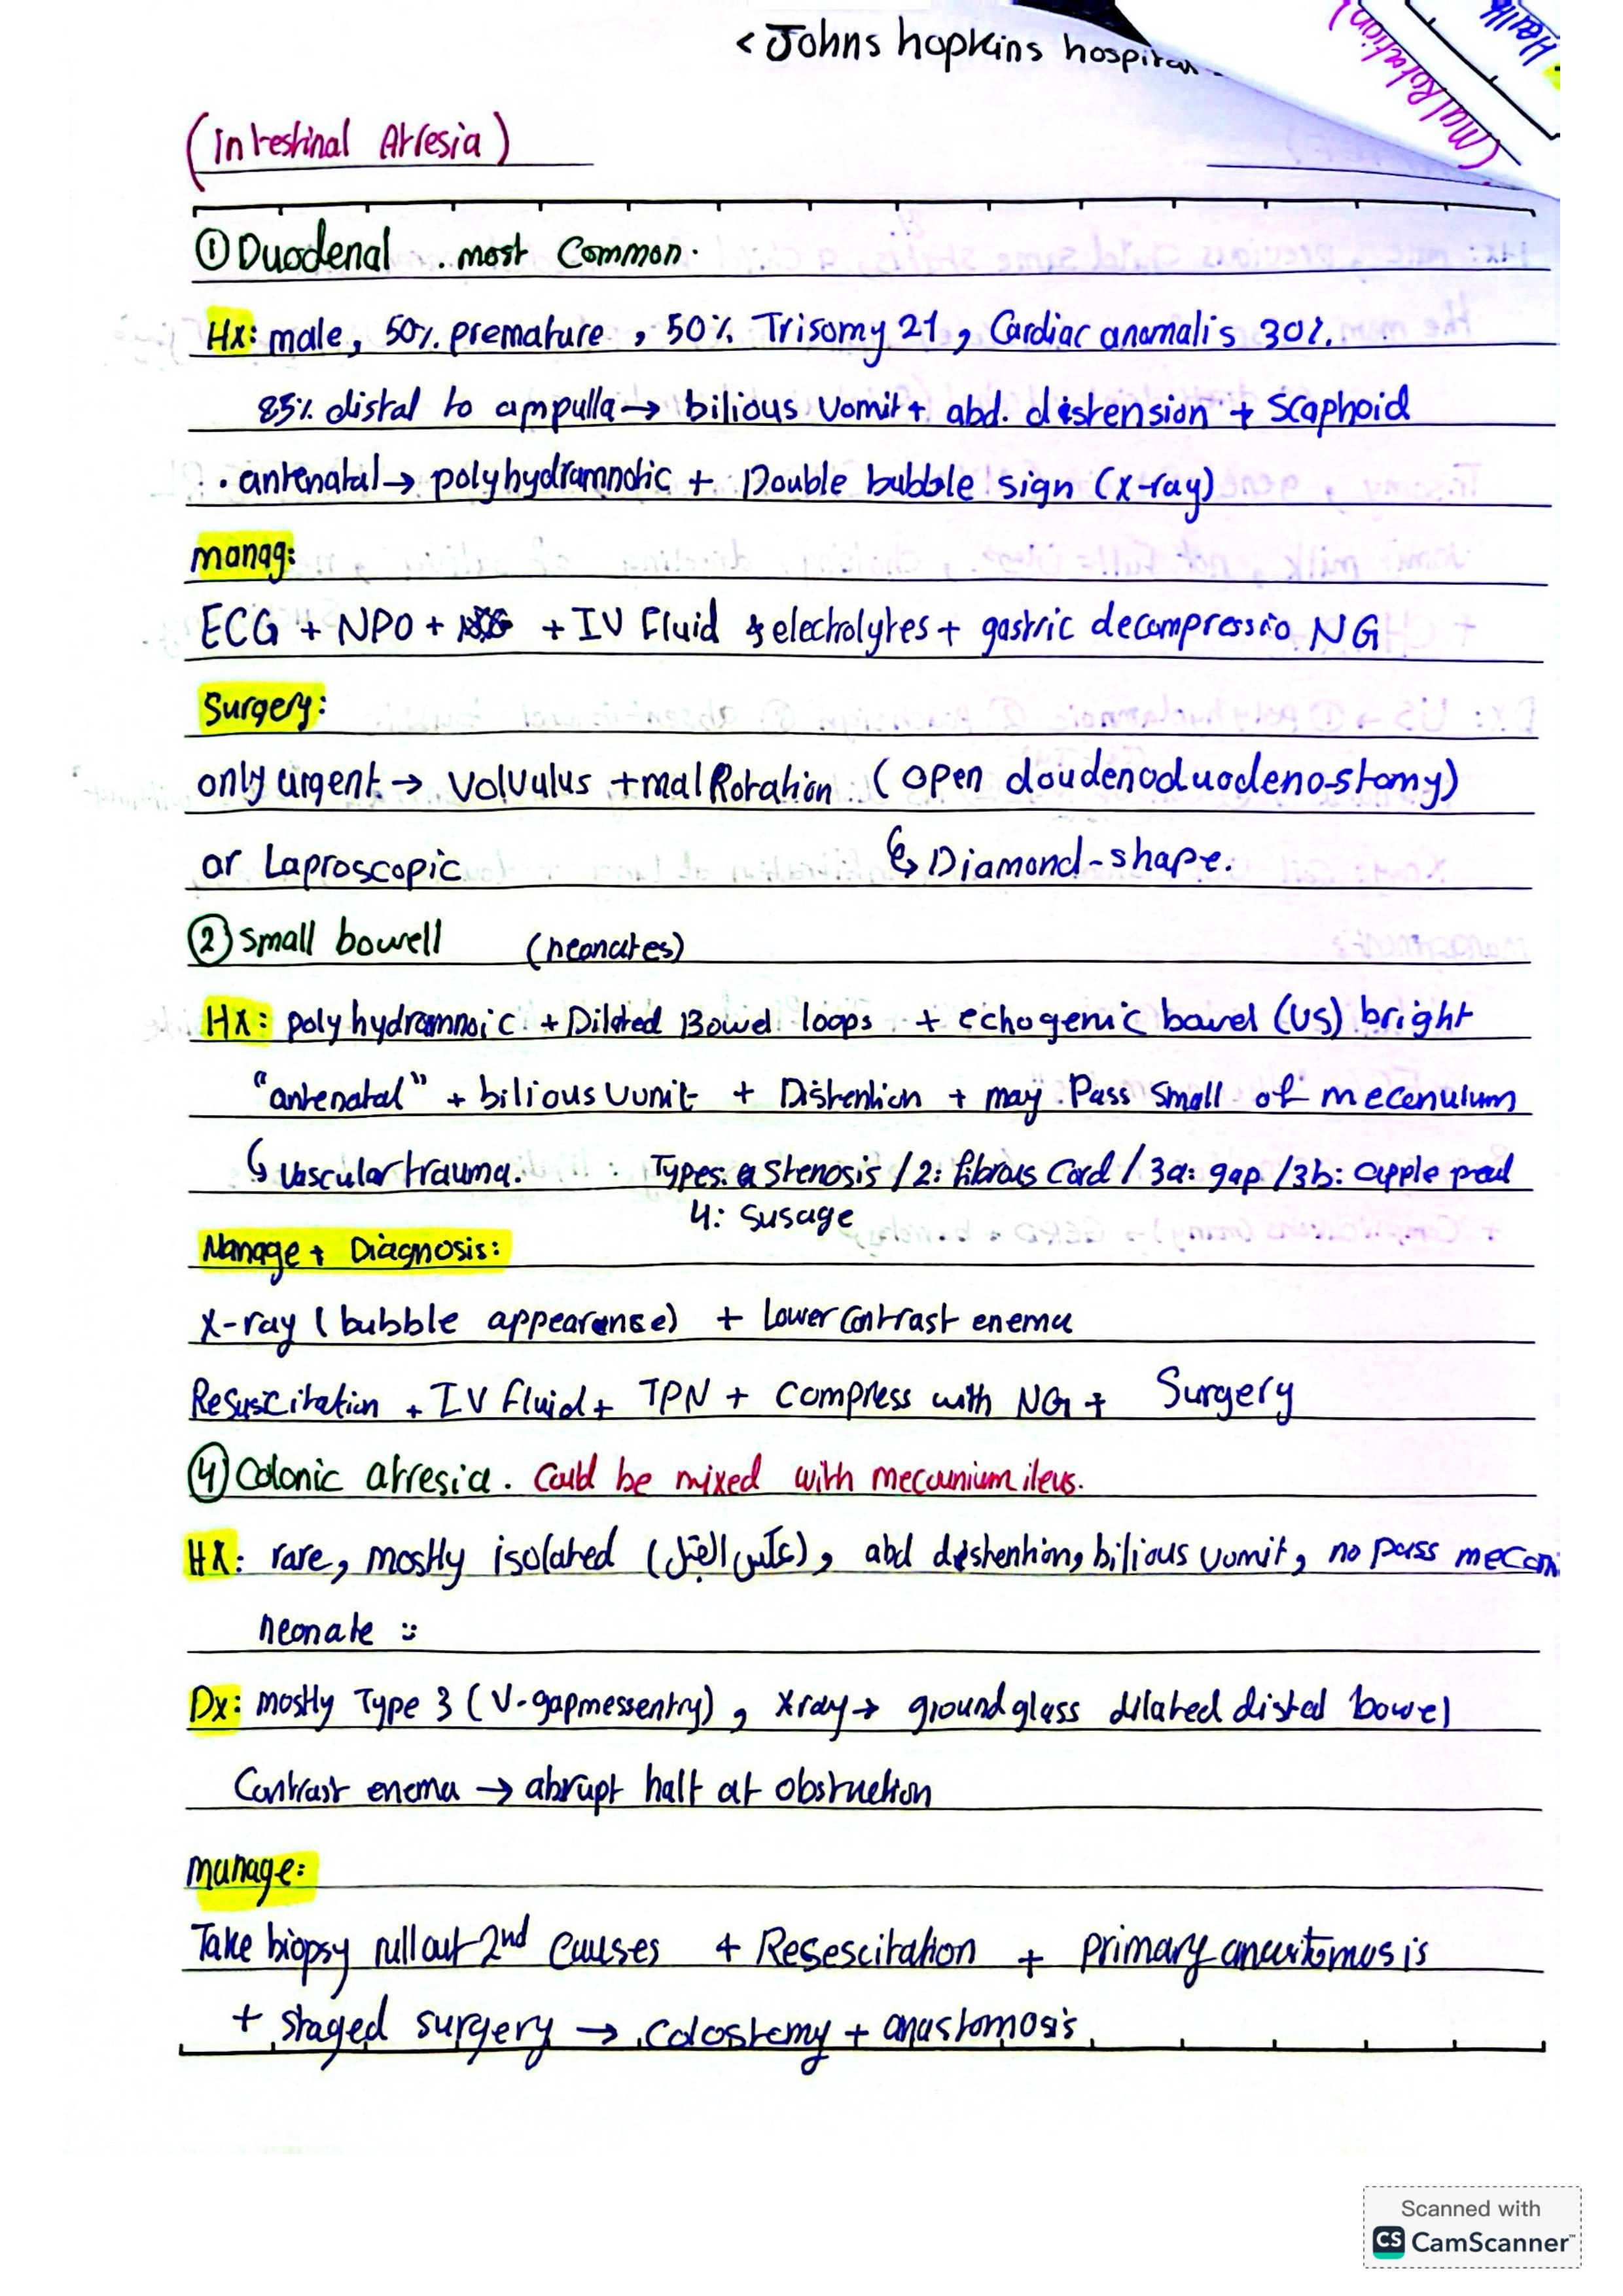 < Johns hopkins hospital
(malRotation)
Health
(Intestinal Atresia)
① Duodenal .. most Common.
Hx: male, 50% premature, 50% Trisomy 21, Cardiac anomalis 30%.
85% distal to ampulla → bilious vomit + abd. distension + Scaphoid
. antenatal → polyhydramnotic + Double bubble sign (x-ray)
manag:
ECG + NPO + + IV Fluid & electrolytes + gastric decompressio NG
Surgery:
only urgent → Volvulus + malRotation (open doudenoduodeno-stomy)
or Laproscopic ↳ Diamond-shape.
② Small bowell (neonates)
Hx: polyhydramnoic + Dilated Bowel loops + echogenic bowel (US) bright
"antenatal" + bilious vomit + Distention + may Pass Small of mecenulum
↳ vascular trauma. Types: Stenosis / 2: fibrous Cord / 3a: gap / 3b: apple peal
4: susage
Manage + Diagnosis:
X-ray (bubble appearense) + Lower Contrast enema
Resuscitation + IV fluid + TPN + Compress with NG + Surgery
④ Colonic atresia. Could be mixed with mecounium ileus.
HX: rare, mostly isolated (عكس القبل), abd distenhion, bilious vomit, no pass mecon
neonate :
Dx: mostly Type 3 (V-gapmessentry), Xray → ground glass dilated distal bowel
Contrast enema → abrupt halt at obstruction
manage:
Take biopsy rull out 2nd Causes + Resescitation + primary anastomosis
+ staged surgery → Colostomy + anastomosis
Scanned with
CS CamScanner™